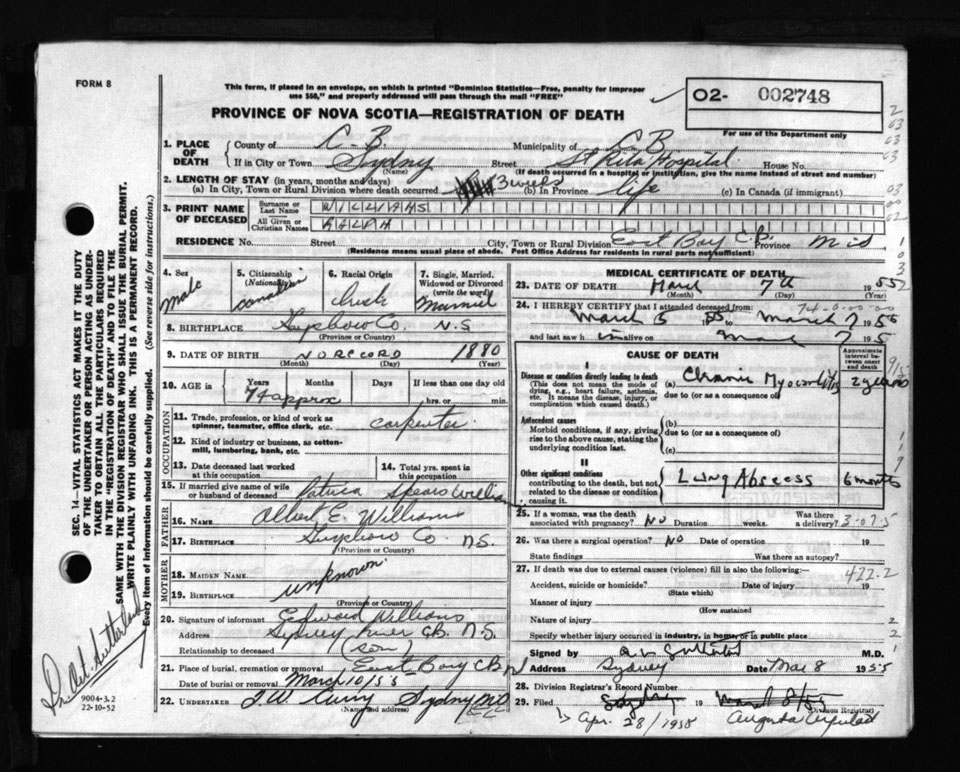 FORM 8
This form, if placed in an envelope, on which is printed "Dominion Statistics—Free, penalty for improper
use $50," and properly addressed will pass through the mail "FREE"
02- 002748
PROVINCE OF NOVA SCOTIA—REGISTRATION OF DEATH
For use of the Department only
1. PLACE OF DEATH
County of C.B. Municipality of C.B.
If in City or Town Sydney Street St Rita Hospital House No.
(Name) (If death occurred in a hospital or institution, give the name instead of street and number)
2. LENGTH OF STAY (in years, months and days)
(a) In City, Town or Rural Division where death occurred 3 weeks (b) In Province life (c) In Canada (if immigrant)
3. PRINT NAME OF DECEASED
Surname or Last Name WILLIAMS
All Given or Christian Names RALPH
RESIDENCE No. Street City, Town or Rural Division East Bay C.B. Province
(Residence means usual place of abode. Post Office Address for residents in rural parts not sufficient)
4. Sex male
5. Citizenship (Nationality)
6. Racial Origin
7. Single, Married, Widowed or Divorced (write the word)
8. BIRTHPLACE Guysboro Co. N.S
(Province or Country)
9. DATE OF BIRTH NO RECORD 1880
(Month) (Day) (Year)
10. AGE in Years Months Days If less than one day old
74 approx hrs. or min.
OCCUPATION
11. Trade, profession, or kind of work as spinner, teamster, office clerk, etc. carpenter
12. Kind of industry or business, as cotton-mill, lumbering, bank, etc.
13. Date deceased last worked at this occupation
14. Total yrs. spent in this occupation
15. If married give name of wife or husband of deceased Patricia Spears Williams
FATHER
16. NAME Albert E. Williams
17. BIRTHPLACE Guysboro Co. N.S.
(Province or Country)
MOTHER
18. MAIDEN NAME unknown.
19. BIRTHPLACE
(Province or Country)
20. Signature of informant Edward Williams
Address Sydney River C.B. N.S.
Relationship to deceased (son)
21. Place of burial, cremation or removal East Bay C.B.
Date of burial or removal March 10/55
22. UNDERTAKER T.W. Curry Sydney
(Name and address)
MEDICAL CERTIFICATE OF DEATH
23. DATE OF DEATH March 7th 1955
(Month) (Day) (Year)
24. I HEREBY CERTIFY that I attended deceased from:
March 5 55 to March 7 1955
and last saw h im alive on Mar 7 195
CAUSE OF DEATH
Approximate interval between onset and death
I
Disease or condition directly leading to death
(This does not mean the mode of dying, e.g., heart failure, asthenia, etc. It means the disease, injury, or complication which caused death.)
(a) Chronic Myocarditis 2 years
due to (or as a consequence of)
Antecedent causes
Morbid conditions, if any, giving rise to the above cause, stating the underlying condition last.
(b)
due to (or as a consequence of)
(c)
II
Other significant conditions contributing to the death, but not related to the disease or condition causing it.
Lung Abscess 6 months
25. If a woman, was the death associated with pregnancy? No Duration weeks. Was there a delivery? 3-07.5
26. Was there a surgical operation? NO Date of operation 19
State findings Was there an autopsy?
27. If death was due to external causes (violence) fill in also the following:— 422.2
Accident, suicide or homicide? Date of injury 19
(State which)
Manner of injury
(How sustained
Nature of injury
Specify whether injury occurred in industry, in home, or in public place
Signed by M.D.
Address Sydney Date Mar 8 1955
28. Division Registrar's Record Number
29. Filed Sydney 19
(Division Registrar)
Apr. 28/1955
SEC. 14—VITAL STATISTICS ACT MAKES IT THE DUTY
OF THE UNDERTAKER OR PERSON ACTING AS UNDER-
TAKER TO OBTAIN ALL THE PARTICULARS REQUIRED
IN THE "REGISTRATION OF DEATH" AND TO FILE THE
SAME WITH THE DIVISION REGISTRAR WHO SHALL ISSUE THE BURIAL PERMIT.
WRITE PLAINLY WITH UNFADING INK. THIS IS A PERMANENT RECORD.
Every item of information should be carefully supplied. (See reverse side for instructions.)
9004-3.2
22-10-52